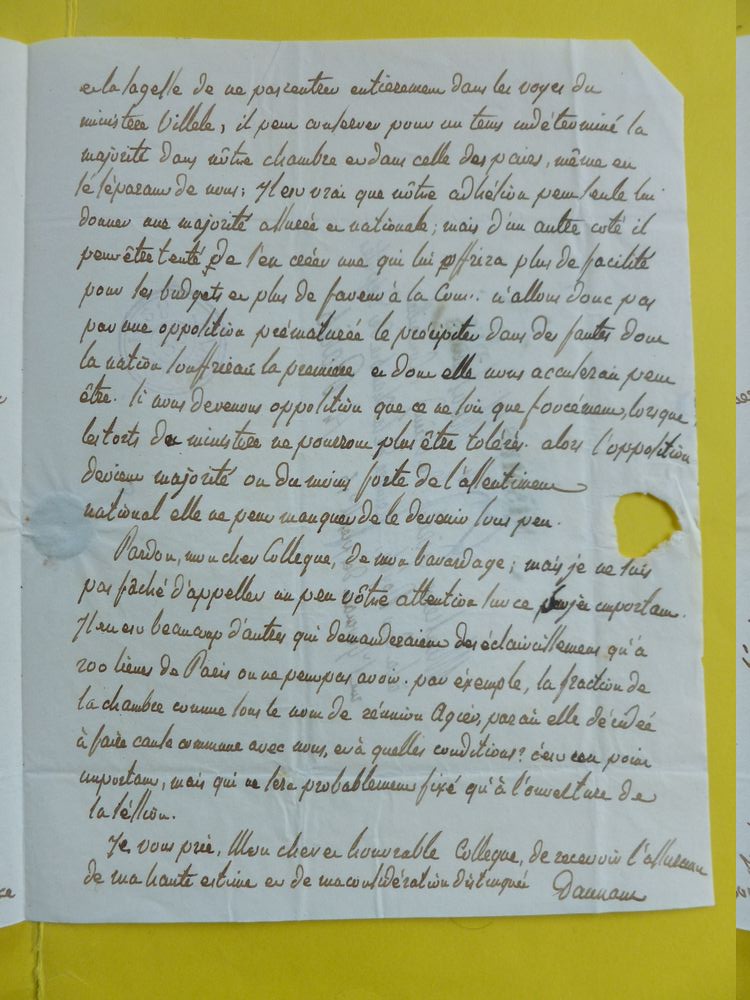 et la sagesse de ne pas rentrer entierement dans les voyes du
ministere Villele, il peut conserver pour un tems indéterminé la
majorité dans nôtre chambre et dans celle des pairs, même en
se séparant de nous; Il est vrai que nôtre adhésion peut seule lui
donner une majorité assurée et nationale; mais d'un autre coté il
peut être tenté de s'en créer une qui lui offrira plus de facilité
pour les budgets et plus de faveur à la Cour. n'allons donc pas
par une opposition prématurée le précipiter dans des fautes dont
la nation souffrirait la premiere et dont elle nous accuserait peut
être. Si nous devenons opposition que ce ne soit que forcément, lorsque
les torts du ministere ne pourront plus être tolérés. alors l'opposition
devient majorité ou du moins forte de l'assentiment
national elle ne peut manquer de le devenir sous peu.
Pardon, mon cher Collegue, de mon bavardage; mais je ne suis
pas fâché d'appeller un peu vôtre attention sur ce sujet important.
Il en est beaucoup d'autres qui demanderaient des éclaircissemens qu'à
200 lieues de Paris on ne peut pas avoir. par éxemple, la fraction de
la chambre connue sous le nom de réunion Agier, parait elle décidée
à faire cause commune avec nous, et à quelles conditions? c'est un point
important, mais qui ne sera probablement fixé qu'à l'ouverture de
la session.
Je vous prie, Mon cher et honorable Collegue, de recevoir l'assurance
de ma haute estime et de ma considération distinguée
Daunant